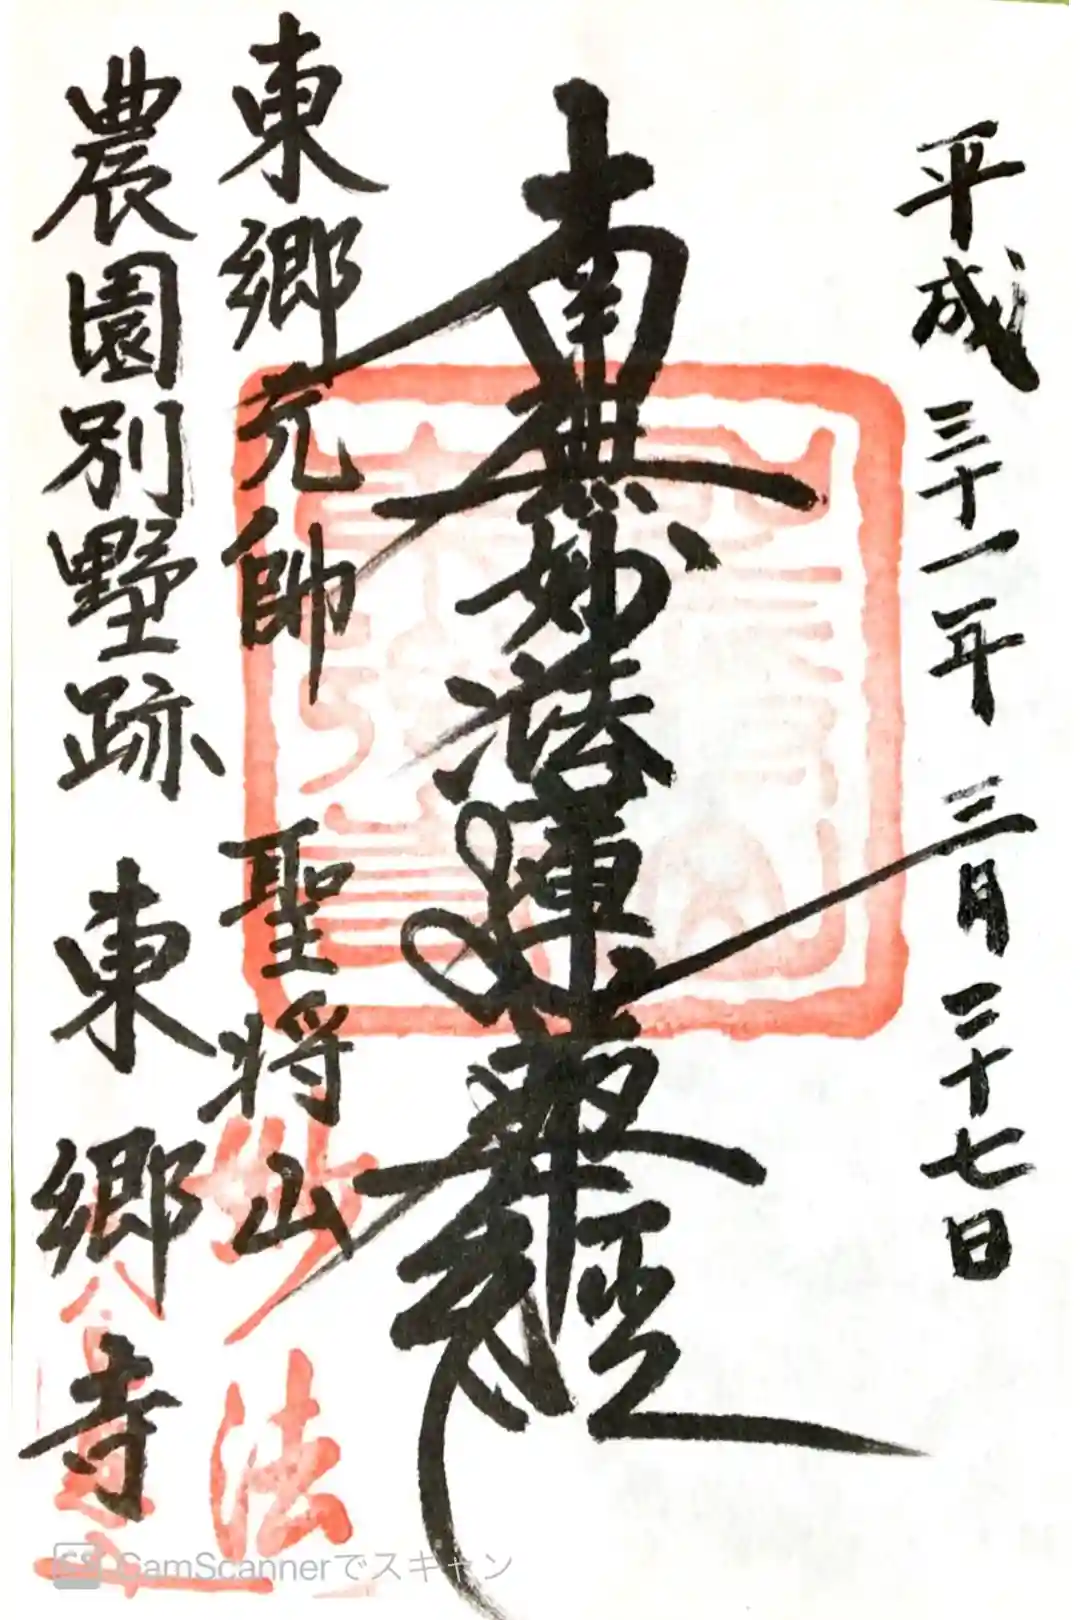 平成三十一年 三月二十七日
南無妙法蓮華經
東郷元帥 聖将山
農園別墅跡 東郷寺
妙法
CS CamScannerでスキャン